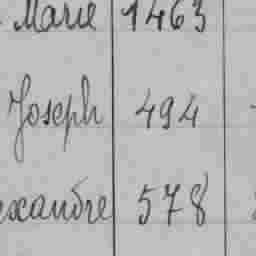 Marie 1463
Joseph 494
exandre 578